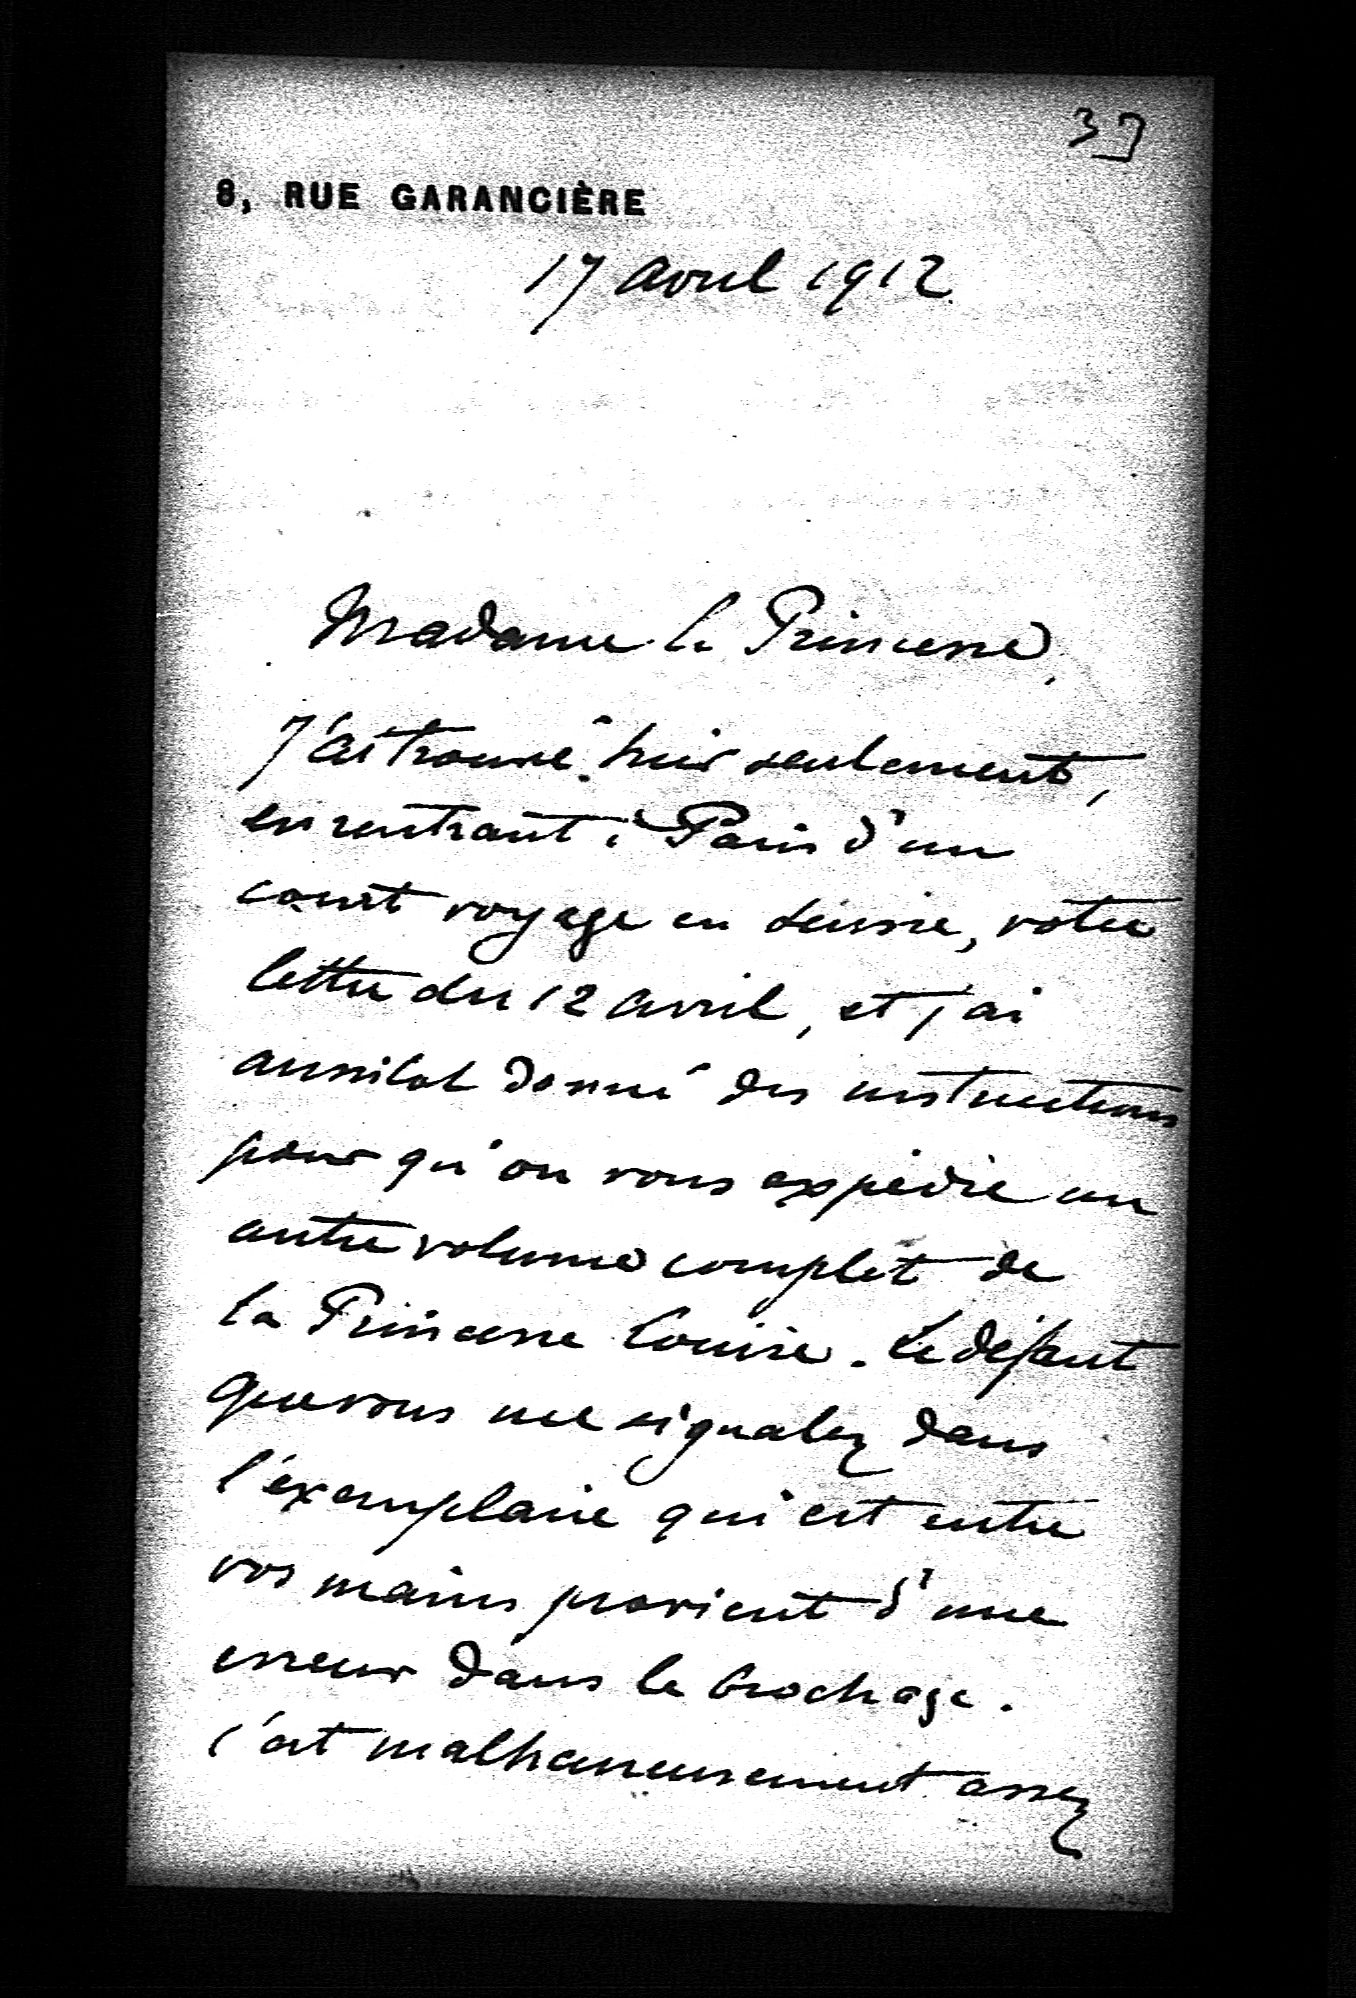 39
8, RUE GARANCIÈRE
17 avril 1912
Madame la Princesse,
J'ai trouvé hier seulement,
en rentrant à Paris d'un
court voyage en Suisse, votre
lettre du 12 avril, et j'ai
aussitot donné des instructions
pour qu'on vous expédie un
autre volume complet de
la Princesse Louise. Le défaut
que vous me signalez dans
l'exemplaire qui est entre
vos mains provient d'une
erreur dans le brochage.
C'est malheureusement assez